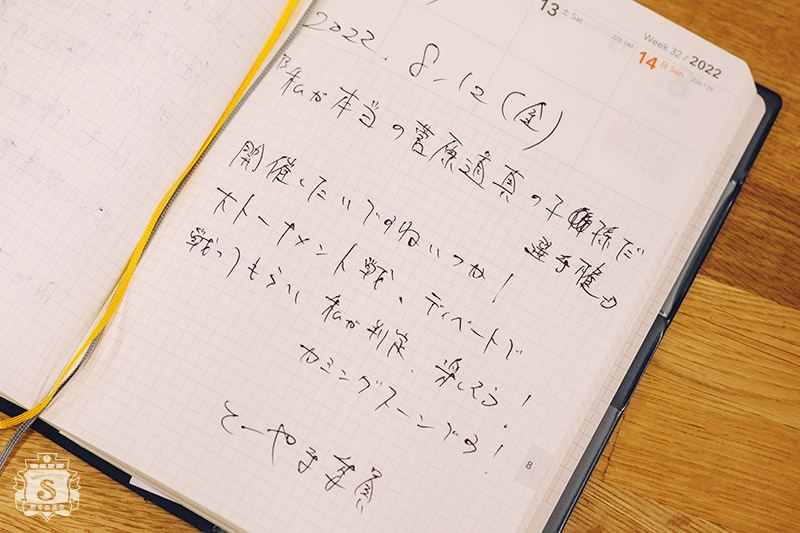 13 土 Sat
Week 32 / 2022
14 日 Sun
2022. 8.12 (金)
私が本当の菅原道真の子孫だ
選手権」
開催したいですねいつか!
大トーナメント戦、ディベートで
戦ってもらい私が判定、楽しそう!
カミングスーンです!
とーやま委員
8
S